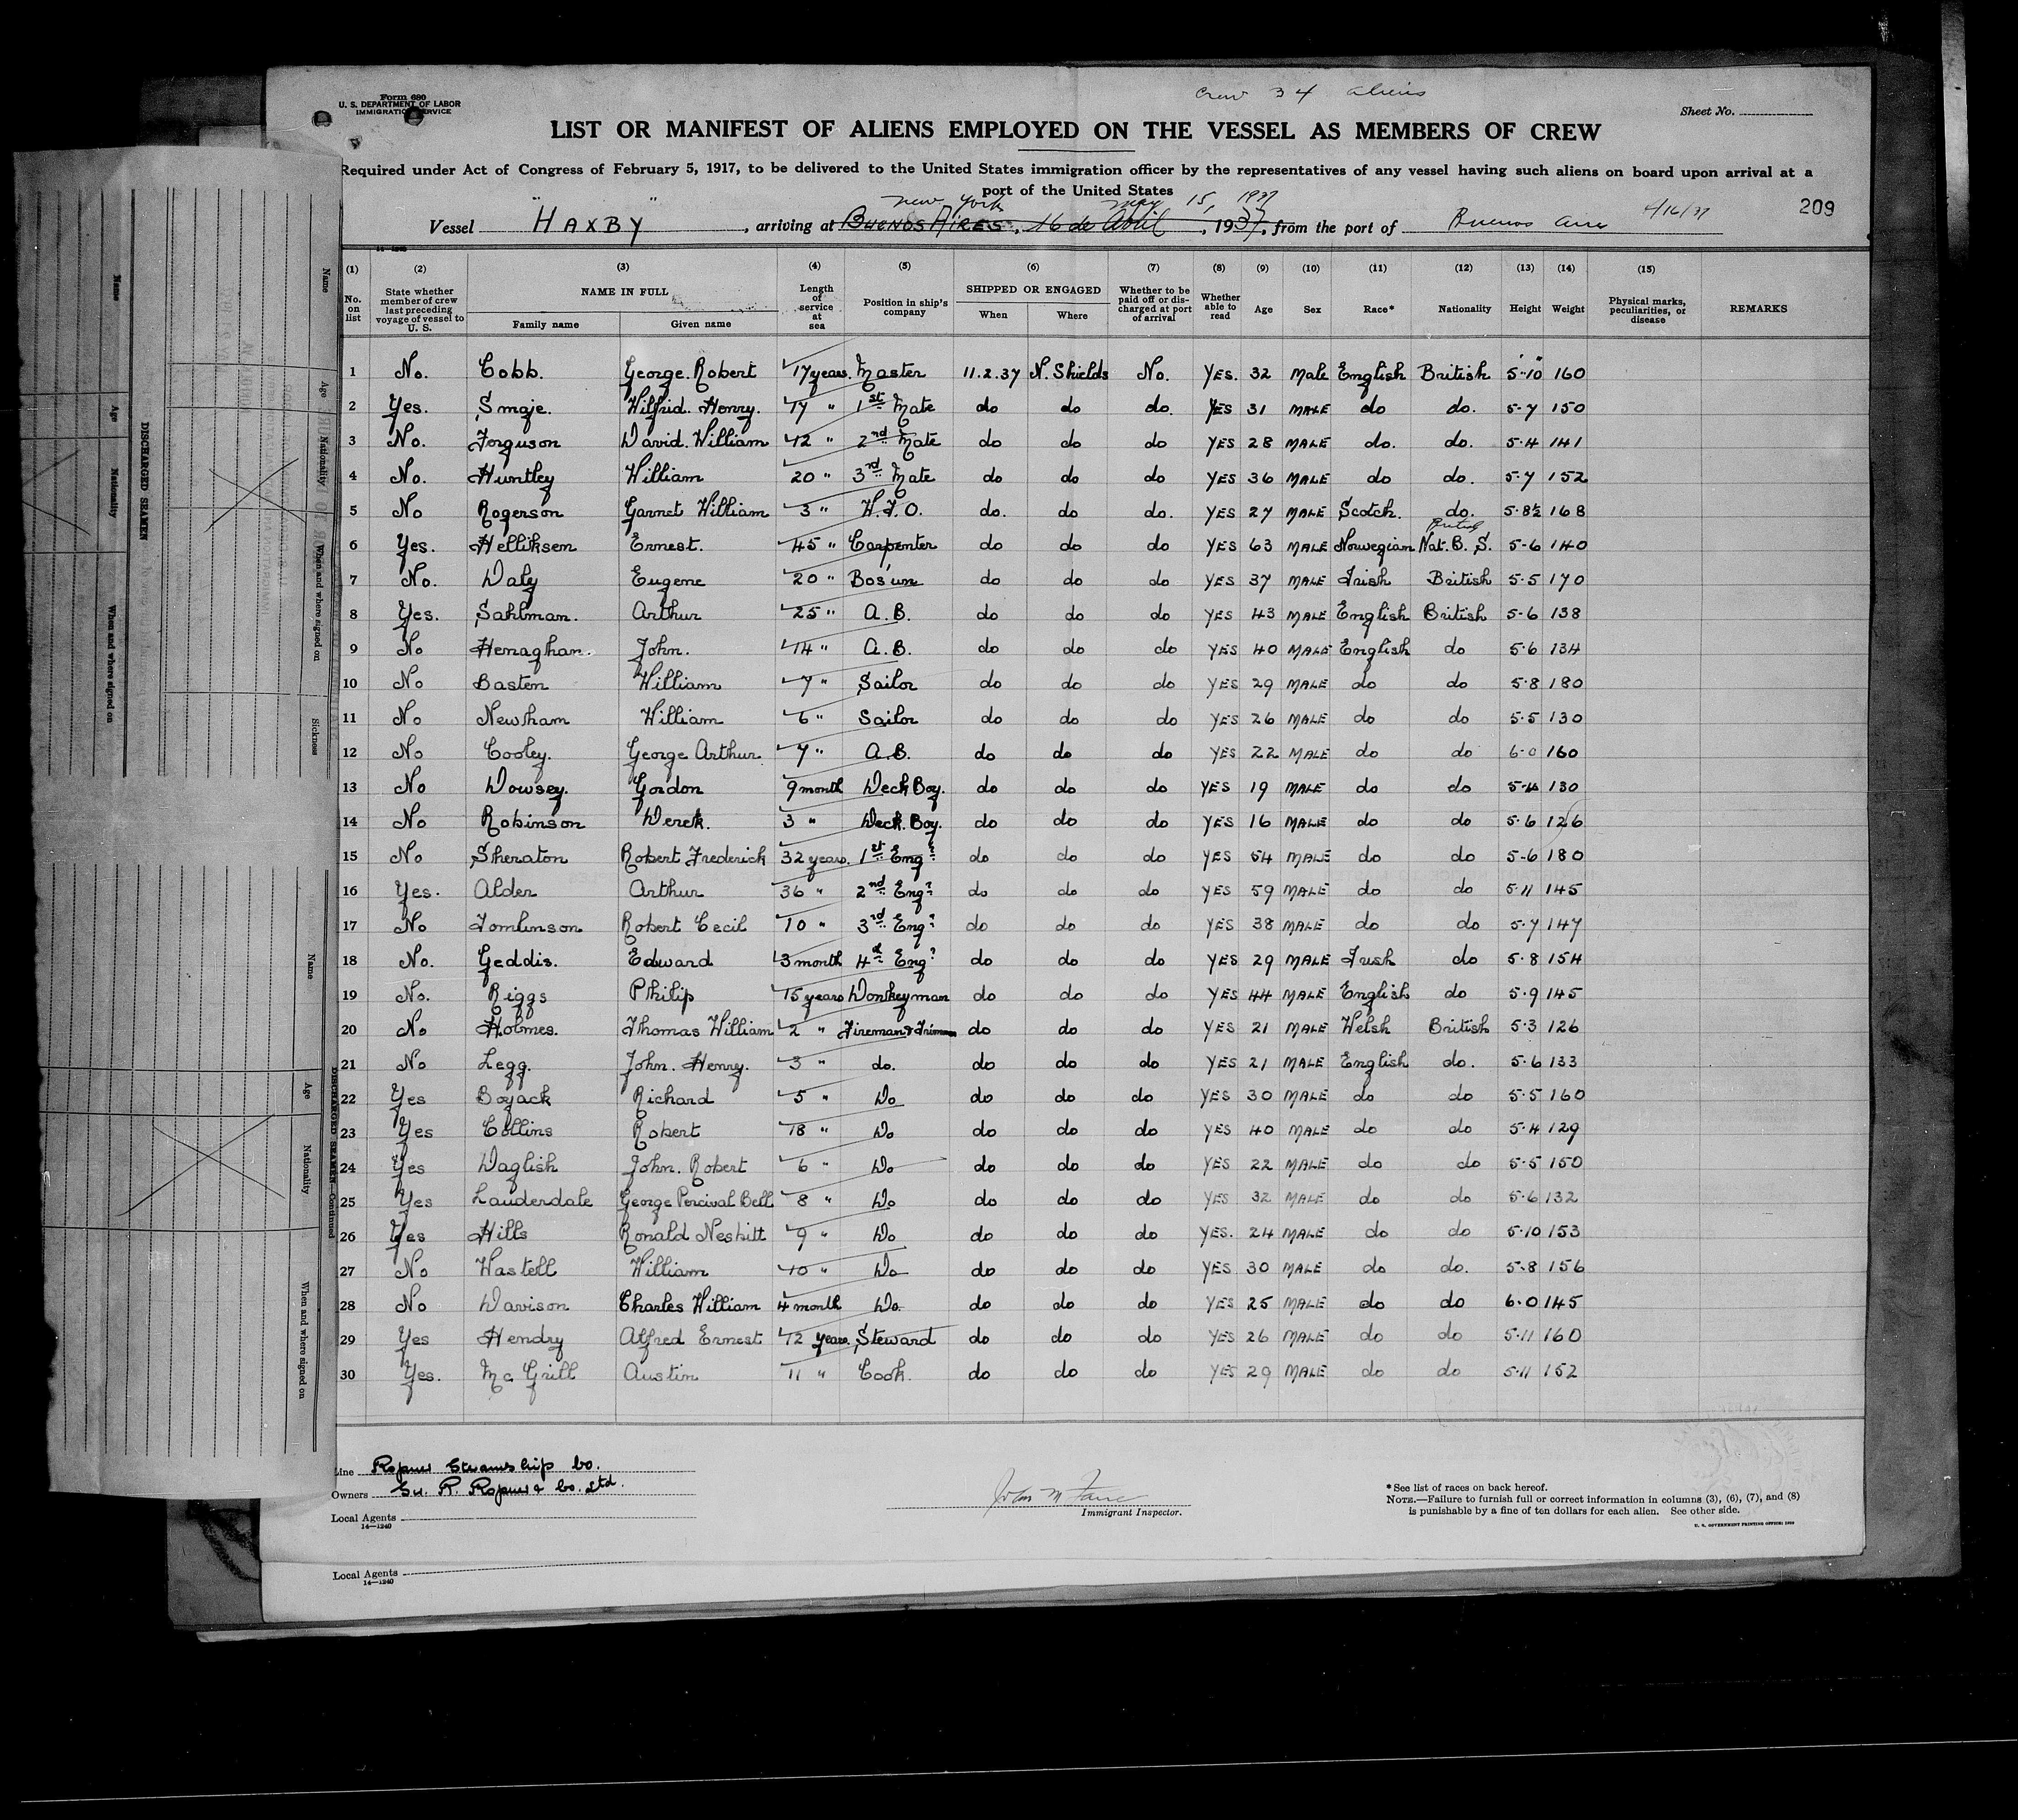 Crew 34 aliens
Form 680
U. S. DEPARTMENT OF LABOR
IMMIGRATION SERVICE
Sheet No.
LIST OR MANIFEST OF ALIENS EMPLOYED ON THE VESSEL AS MEMBERS OF CREW
Required under Act of Congress of February 5, 1917, to be delivered to the United States immigration officer by the representatives of any vessel having such aliens on board upon arrival at a
port of the United States
New York May 15, 1937
Vessel "HAXBY", arriving at BUENOS AIRES, 16 de Abril, 1937, from the port of Buenos Aires 4/16/37
209
(1) (2) (3) (4) (5) (6) (7) (8) (9) (10) (11) (12) (13) (14) (15)
No. on list State whether member of crew last preceding voyage of vessel to U. S. NAME IN FULL Family name Given name Length of service at sea Position in ship's company SHIPPED OR ENGAGED When Where Whether to be paid off or discharged at port of arrival Whether able to read Age Sex Race* Nationality Height Weight Physical marks, peculiarities, or disease REMARKS
1 No. Cobb. George. Robert 17 years. Master 11.2.37 N. Shields No. YES. 32 Male English British 5-10 160
2 Yes. Smaje. Wilfrid. Henry. 17 " 1st Mate do do do. YES 31 MALE do do. 5-7 150
3 No. Ferguson David. William 12 " 2nd Mate do do do YES 28 MALE do. do. 5-4 141
4 No. Huntley William 20 " 3rd Mate do do do YES 36 MALE do do. 5-7 152
5 No Rogerson Garnet William 3 " W.T.O. do. do do. YES 27 MALE Scotch. do. 5-8½ 168
British
6 Yes. Helliksen Ernest. 45 " Carpenter do do do YES 63 MALE Norwegian Nat. B. S. 5-6 140
7 No. Daly Eugene 20 " Bos'un do do do YES 37 MALE Irish British 5-5 170
8 Yes. Sahlman. Arthur 25 " A.B. do do do YES 43 MALE English British 5-6 138
9 No Henaghan. John. 14 " A.B. do do do YES 40 MALE English do 5-6 134
10 No Basten William 7 " Sailor do do do YES 29 MALE do do 5-8 180
11 No Newsham William 6 " Sailor do do do YES 26 MALE do do 5-5 130
12 No Cooley. George Arthur. 7 " A.B. do do do YES 22 MALE do do 6-0 160
13 No Dowsey. Gordon 9 month Deck Boy. do do do YES 19 MALE do do 130
14 No Robinson Derek. 3 " Deck. Boy. do do do YES 16 MALE do do 5-6 126
15 No Sheraton Robert Frederick 32 years. 1st Engr do do do YES 54 MALE do do 5-6 180
16 Yes. Alder Arthur 36 " 2nd Engr do do do YES 59 MALE do do 5-11 145
17 No Tomlinson Robert Cecil 10 " 3rd Engr do do do YES 38 MALE do do 5-7 147
18 No. Geddis. Edward 3 month 4th Engr do do do YES 29 MALE Irish do 5-8 154
19 No. Riggs Philip 15 years Donkeyman do do do YES 44 MALE English do 5-9 145
20 No Holmes. Thomas William 2 " Fireman & Trimmer do do do YES 21 MALE Welsh British 5-3 126
21 No Legg. John. Henry. 3 " do. do do do YES 21 MALE English do. 5-6 133
22 Yes Boyack Richard 5 " Do do do do YES 30 MALE do do 5-5 160
23 Yes Collins Robert 18 " Do do do do YES 40 MALE do do 5-4 129
24 Yes Daglish John. Robert 6 " Do do do do YES 22 MALE do do 5-5 150
25 Yes Lauderdale George Percival Bell 8 " Do do do do YES 32 MALE do do 5-6 132
26 Yes Hills Ronald Nesbitt 9 " Do do do do YES. 24 MALE do do 5-10 153
27 No Wastell William 10 " Do do do do YES 30 MALE do do. 5-8 156
28 No Davison Charles William 4 month Do. do do do YES 25 MALE do do 6-0 145
29 Yes Hendry Alfred Ernest 12 years. Steward do do do YES 26 MALE do do 5-11 160
30 Yes. Mc Grill Austin 11 " Cook. do do do YES 29 MALE do do 5-11 152
Line Ropner Steamship Co.
Owners Sir. R. Ropner & Co. Ltd.
Local Agents
14—1240
John M
Immigrant Inspector.
*See list of races on back hereof.
NOTE.—Failure to furnish full or correct information in columns (3), (6), (7), and (8)
is punishable by a fine of ten dollars for each alien. See other side.
U. S. GOVERNMENT PRINTING OFFICE
Local Agents
14—1240
DISCHARGED SEAMEN
Name Age Nationality When and where signed on
Name Age Nationality When and where signed on Sickness
DISCHARGED SEAMEN—Continued
Name Age Nationality When and where signed on